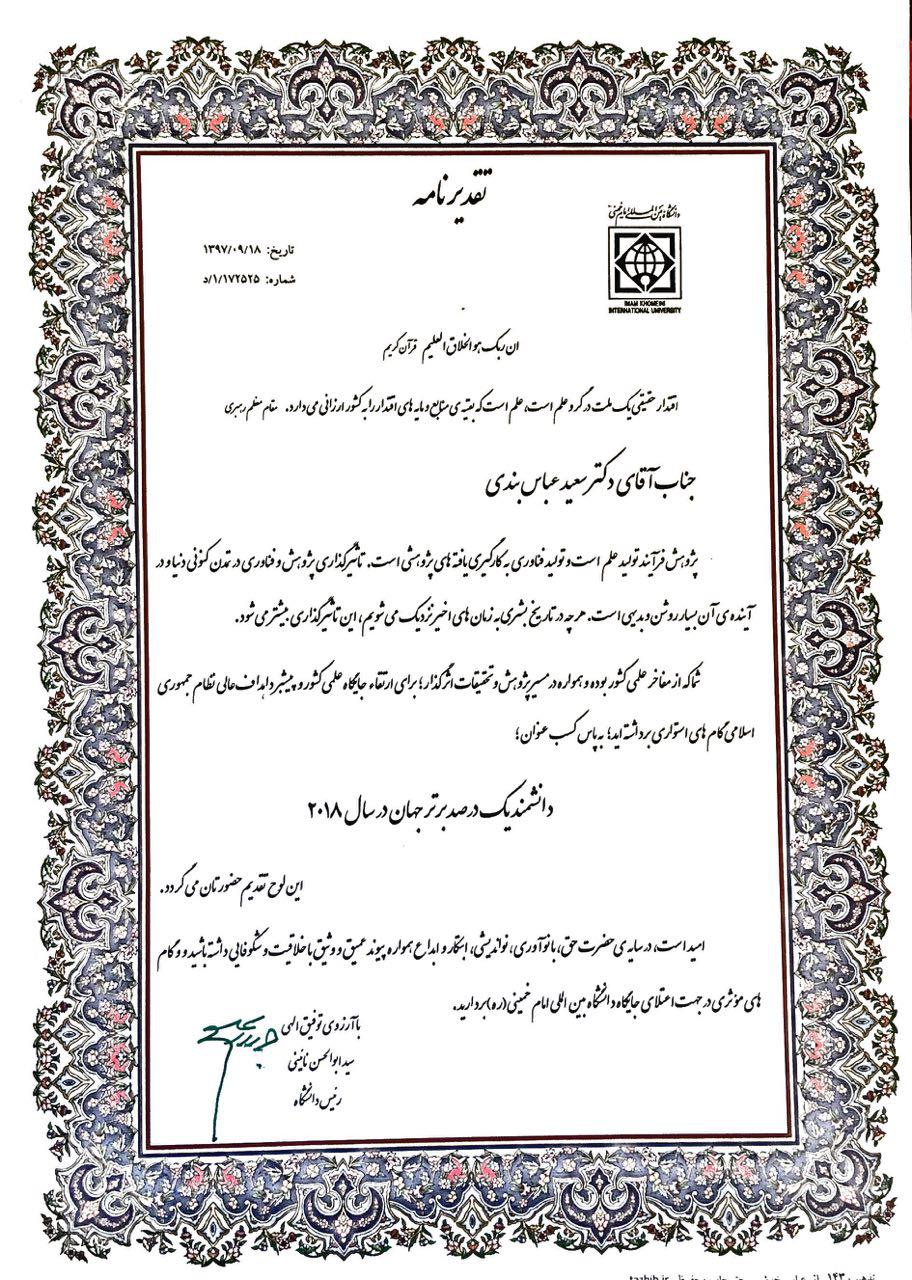 تقدیرنامه
دانشگاه بین المللی امام خمینی
IMAM KHOMEINI
INTERNATIONAL UNIVERSITY
تاریخ: ۱۳۹۷/۰۹/۱۸
شماره: ۱۷۲۵۲۵/۱/د
ان ربک هو الخلاق العلیم قرآن کریم
اقتدار حقیقی یک ملت در گرو علم است، علم است که بقیه ی منابع و مایه های اقتدار را به کشور ارزانی می دارد. مقام معظم رهبری
جناب آقای دکتر سعید عباس بندی
پژوهش فرآیند تولید علم است و تولید فناوری به کارگیری یافته های پژوهشی است. تأثیرگذاری پژوهش و فناوری در تمدن کنونی دنیا و در
آینده ی آن بسیار روشن و بدیهی است. هر چه در تاریخ بشری به زمان های اخیر نزدیک می شویم، این تأثیرگذاری بیشتر می شود.
شما که از مفاخر علمی کشور بوده و همواره در مسیر پژوهش و تحقیقات اثرگذار؛ برای ارتقاء جایگاه علمی کشور و پیشبرد اهداف عالی نظام جمهوری
اسلامی گام های استواری برداشته اید؛ به پاس کسب عنوان؛
دانشمند یک درصد برتر جهان در سال ۲۰۱۸
این لوح تقدیم حضورتان می گردد.
امید است، در سایه ی حضرت حق، با نوآوری، نواندیشی، ابتکار و ابداع همواره پیوند عمیق و وثیق با خلاقیت و شکوفایی داشته باشید و و گام
های مؤثری در جهت اعتلای جایگاه دانشگاه بین المللی امام خمینی (ره) بردارید.
با آرزوی توفیق الهی
سید ابوالحسن نائینی
رئیس دانشگاه
tazhib.ir